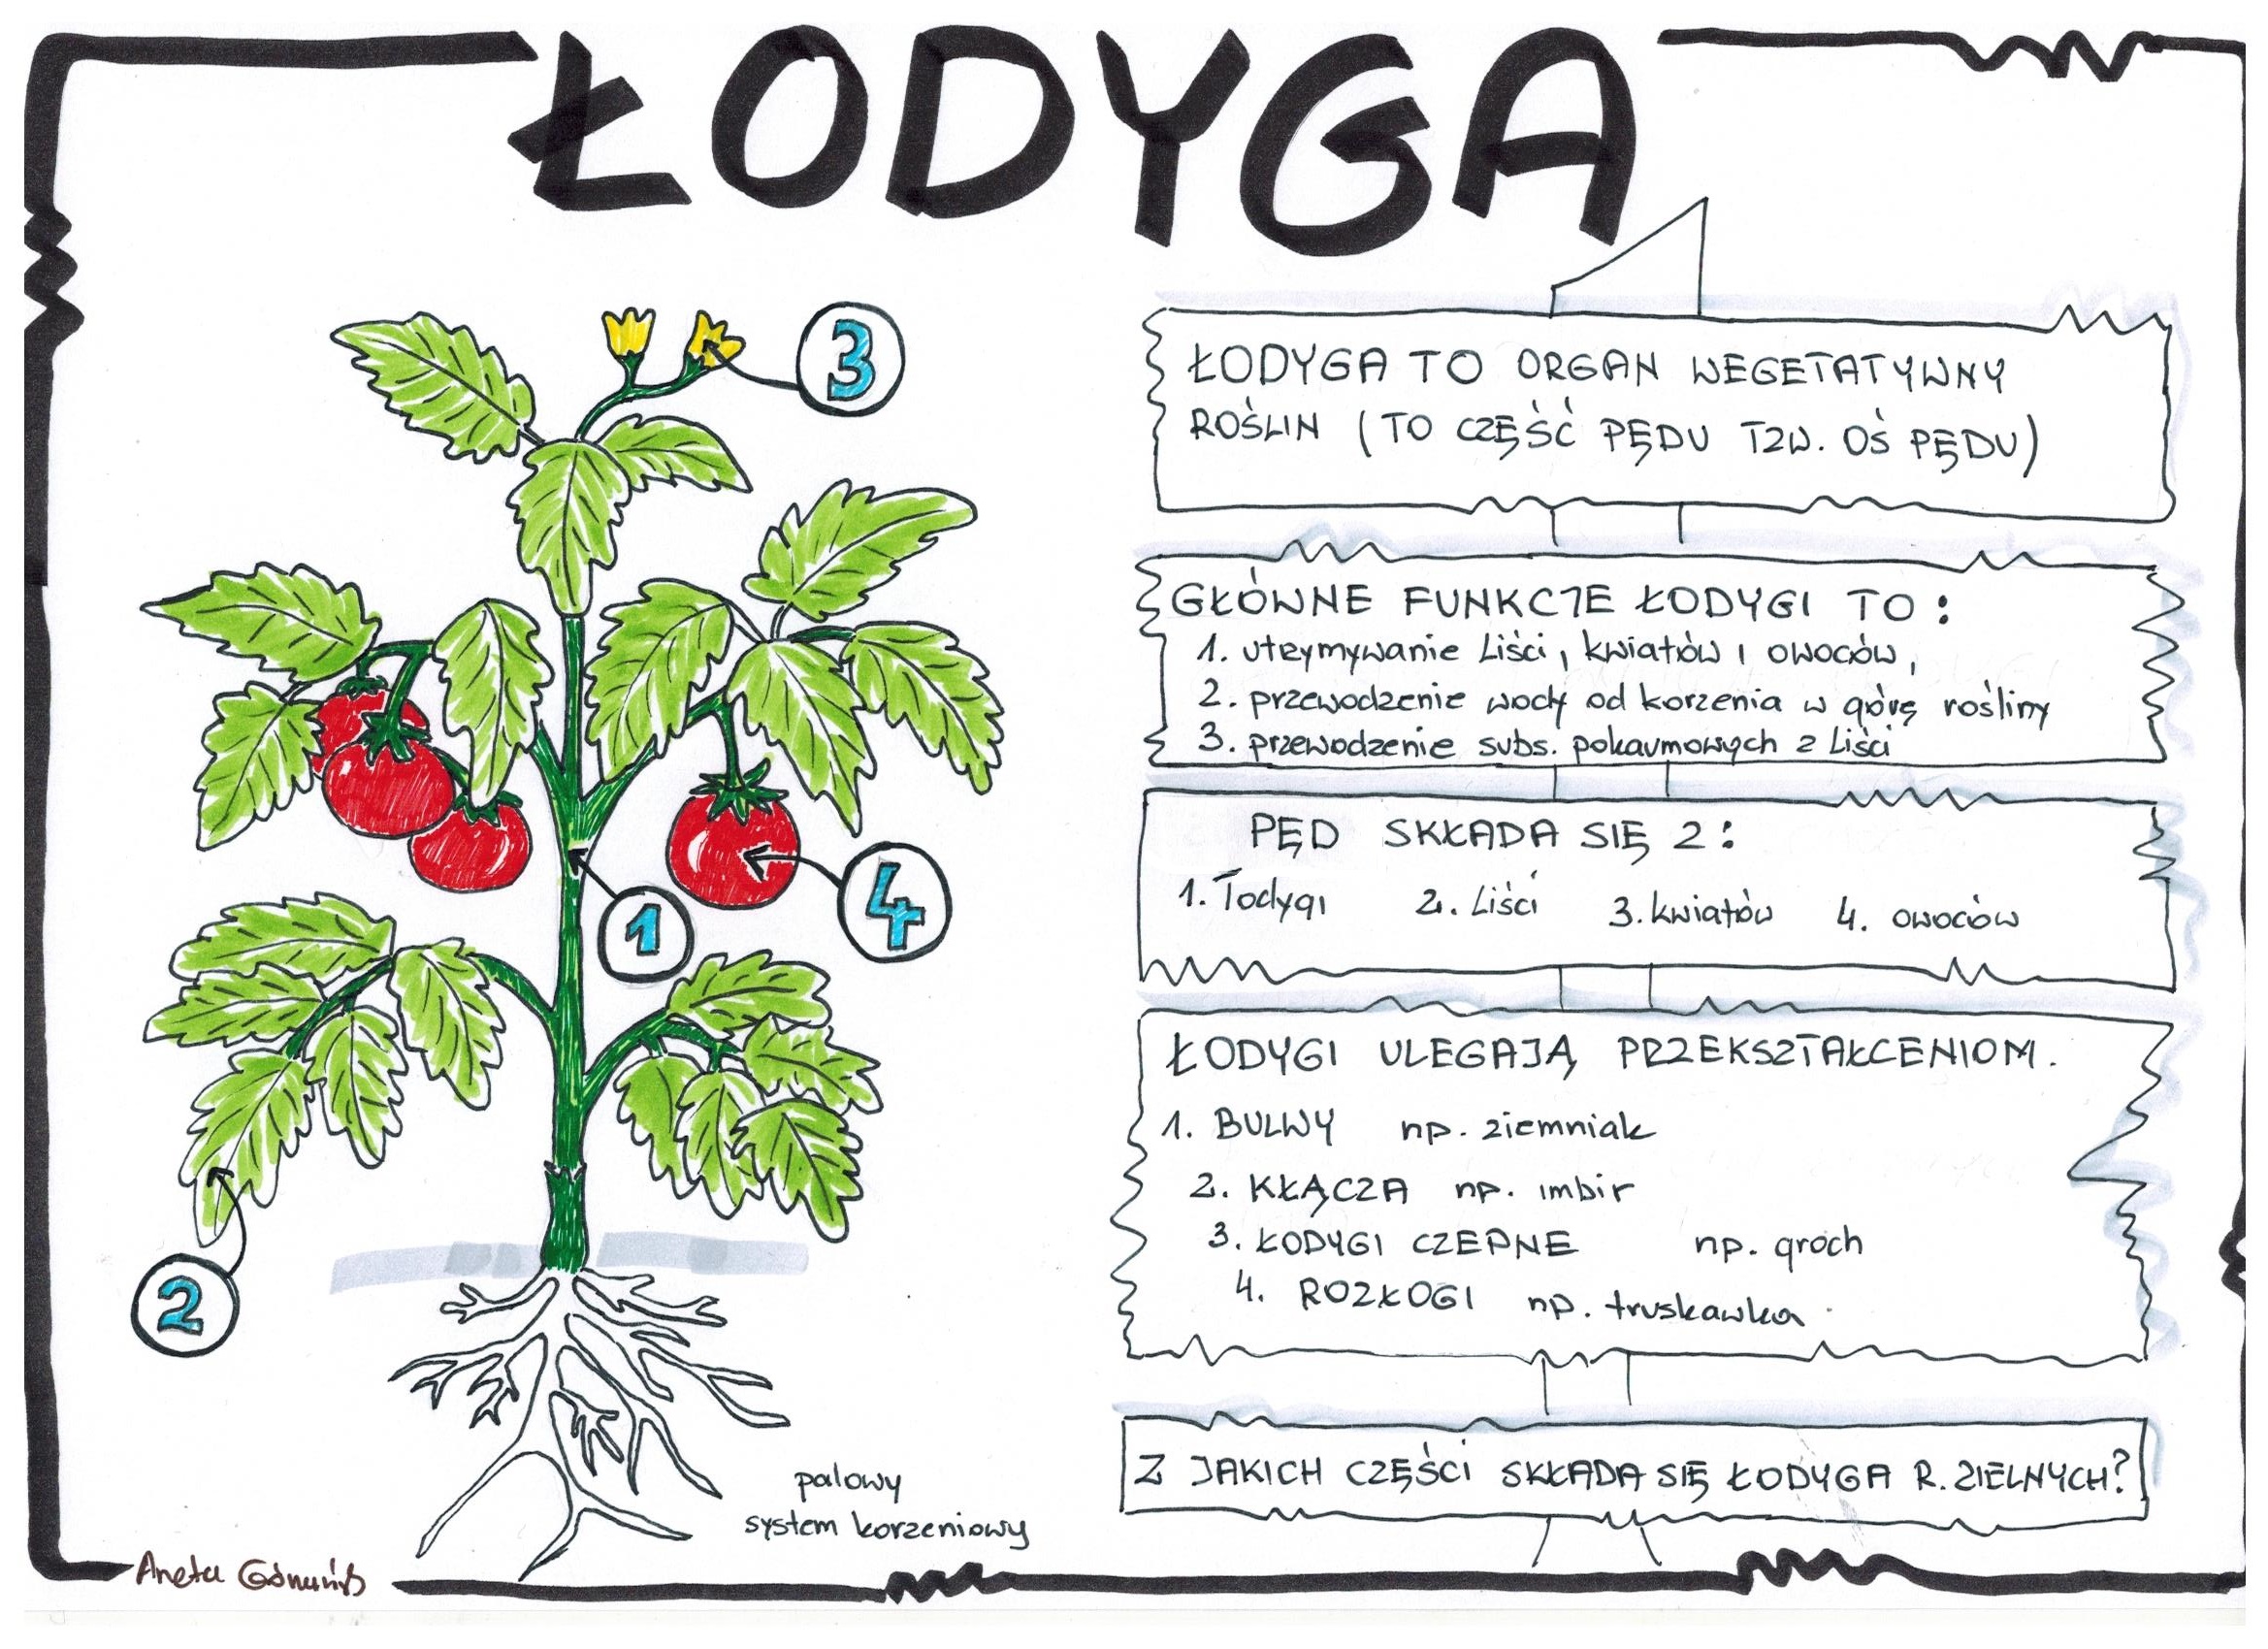 ŁODYGA
3
ŁODYGA TO ORGAN WEGETATYWNY
ROŚLIN (TO CZĘŚĆ PĘDU TZW. OŚ PĘDU)
GŁÓWNE FUNKCJE ŁODYGI TO:
1. utrzymywanie liści, kwiatów i owoców,
2. przewodzenie wody od korzenia w górę rośliny
3. przewodzenie subs. pokarmowych z liści
PĘD SKŁADA SIĘ Z:
1. łodygi 2. liści 3. kwiatów 4. owoców
4
1
ŁODYGI ULEGAJĄ PRZEKSZTAŁCENIOM.
1. BULWY np. ziemniak
2. KŁĄCZA np. imbir
3. ŁODYGI CZEPNE np. groch
4. ROZŁOGI np. truskawka
2
Z JAKICH CZĘŚCI SKŁADA SIĘ ŁODYGA R. ZIELNYCH?
palowy
system korzeniowy
Aneta